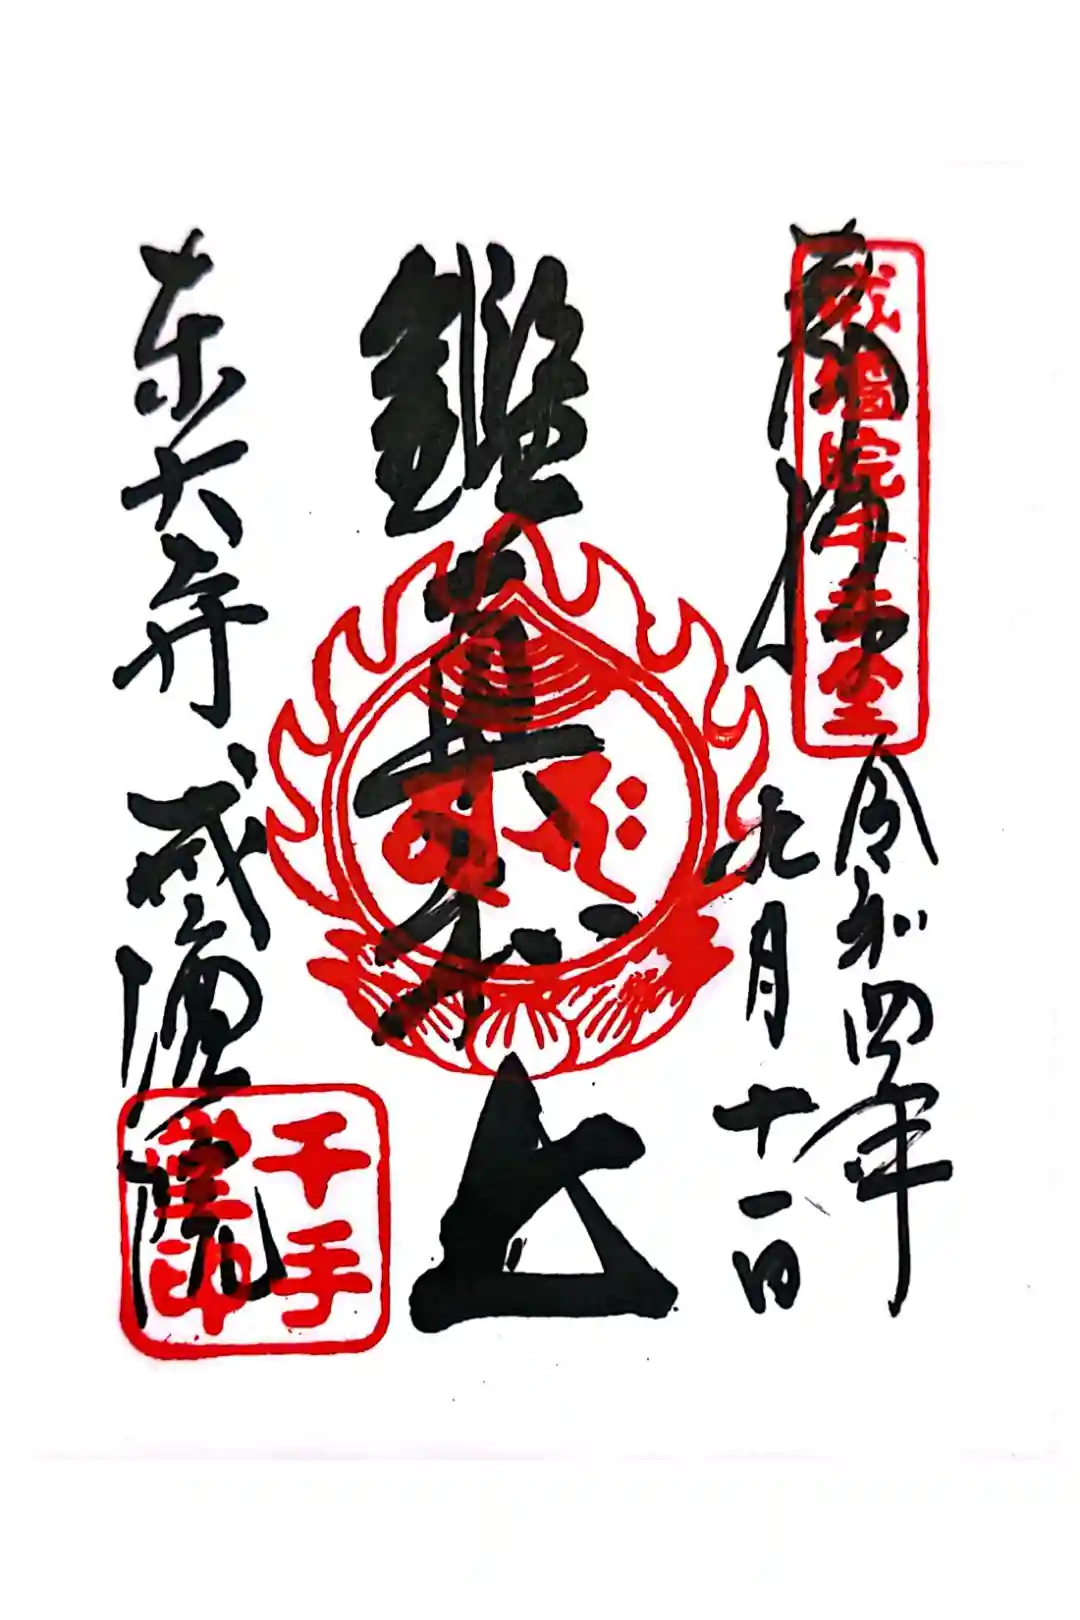 奉拝
戒壇院千手堂
令和四年
九月十一日
鑑真和上
東大寺戒壇院
千手
堂印